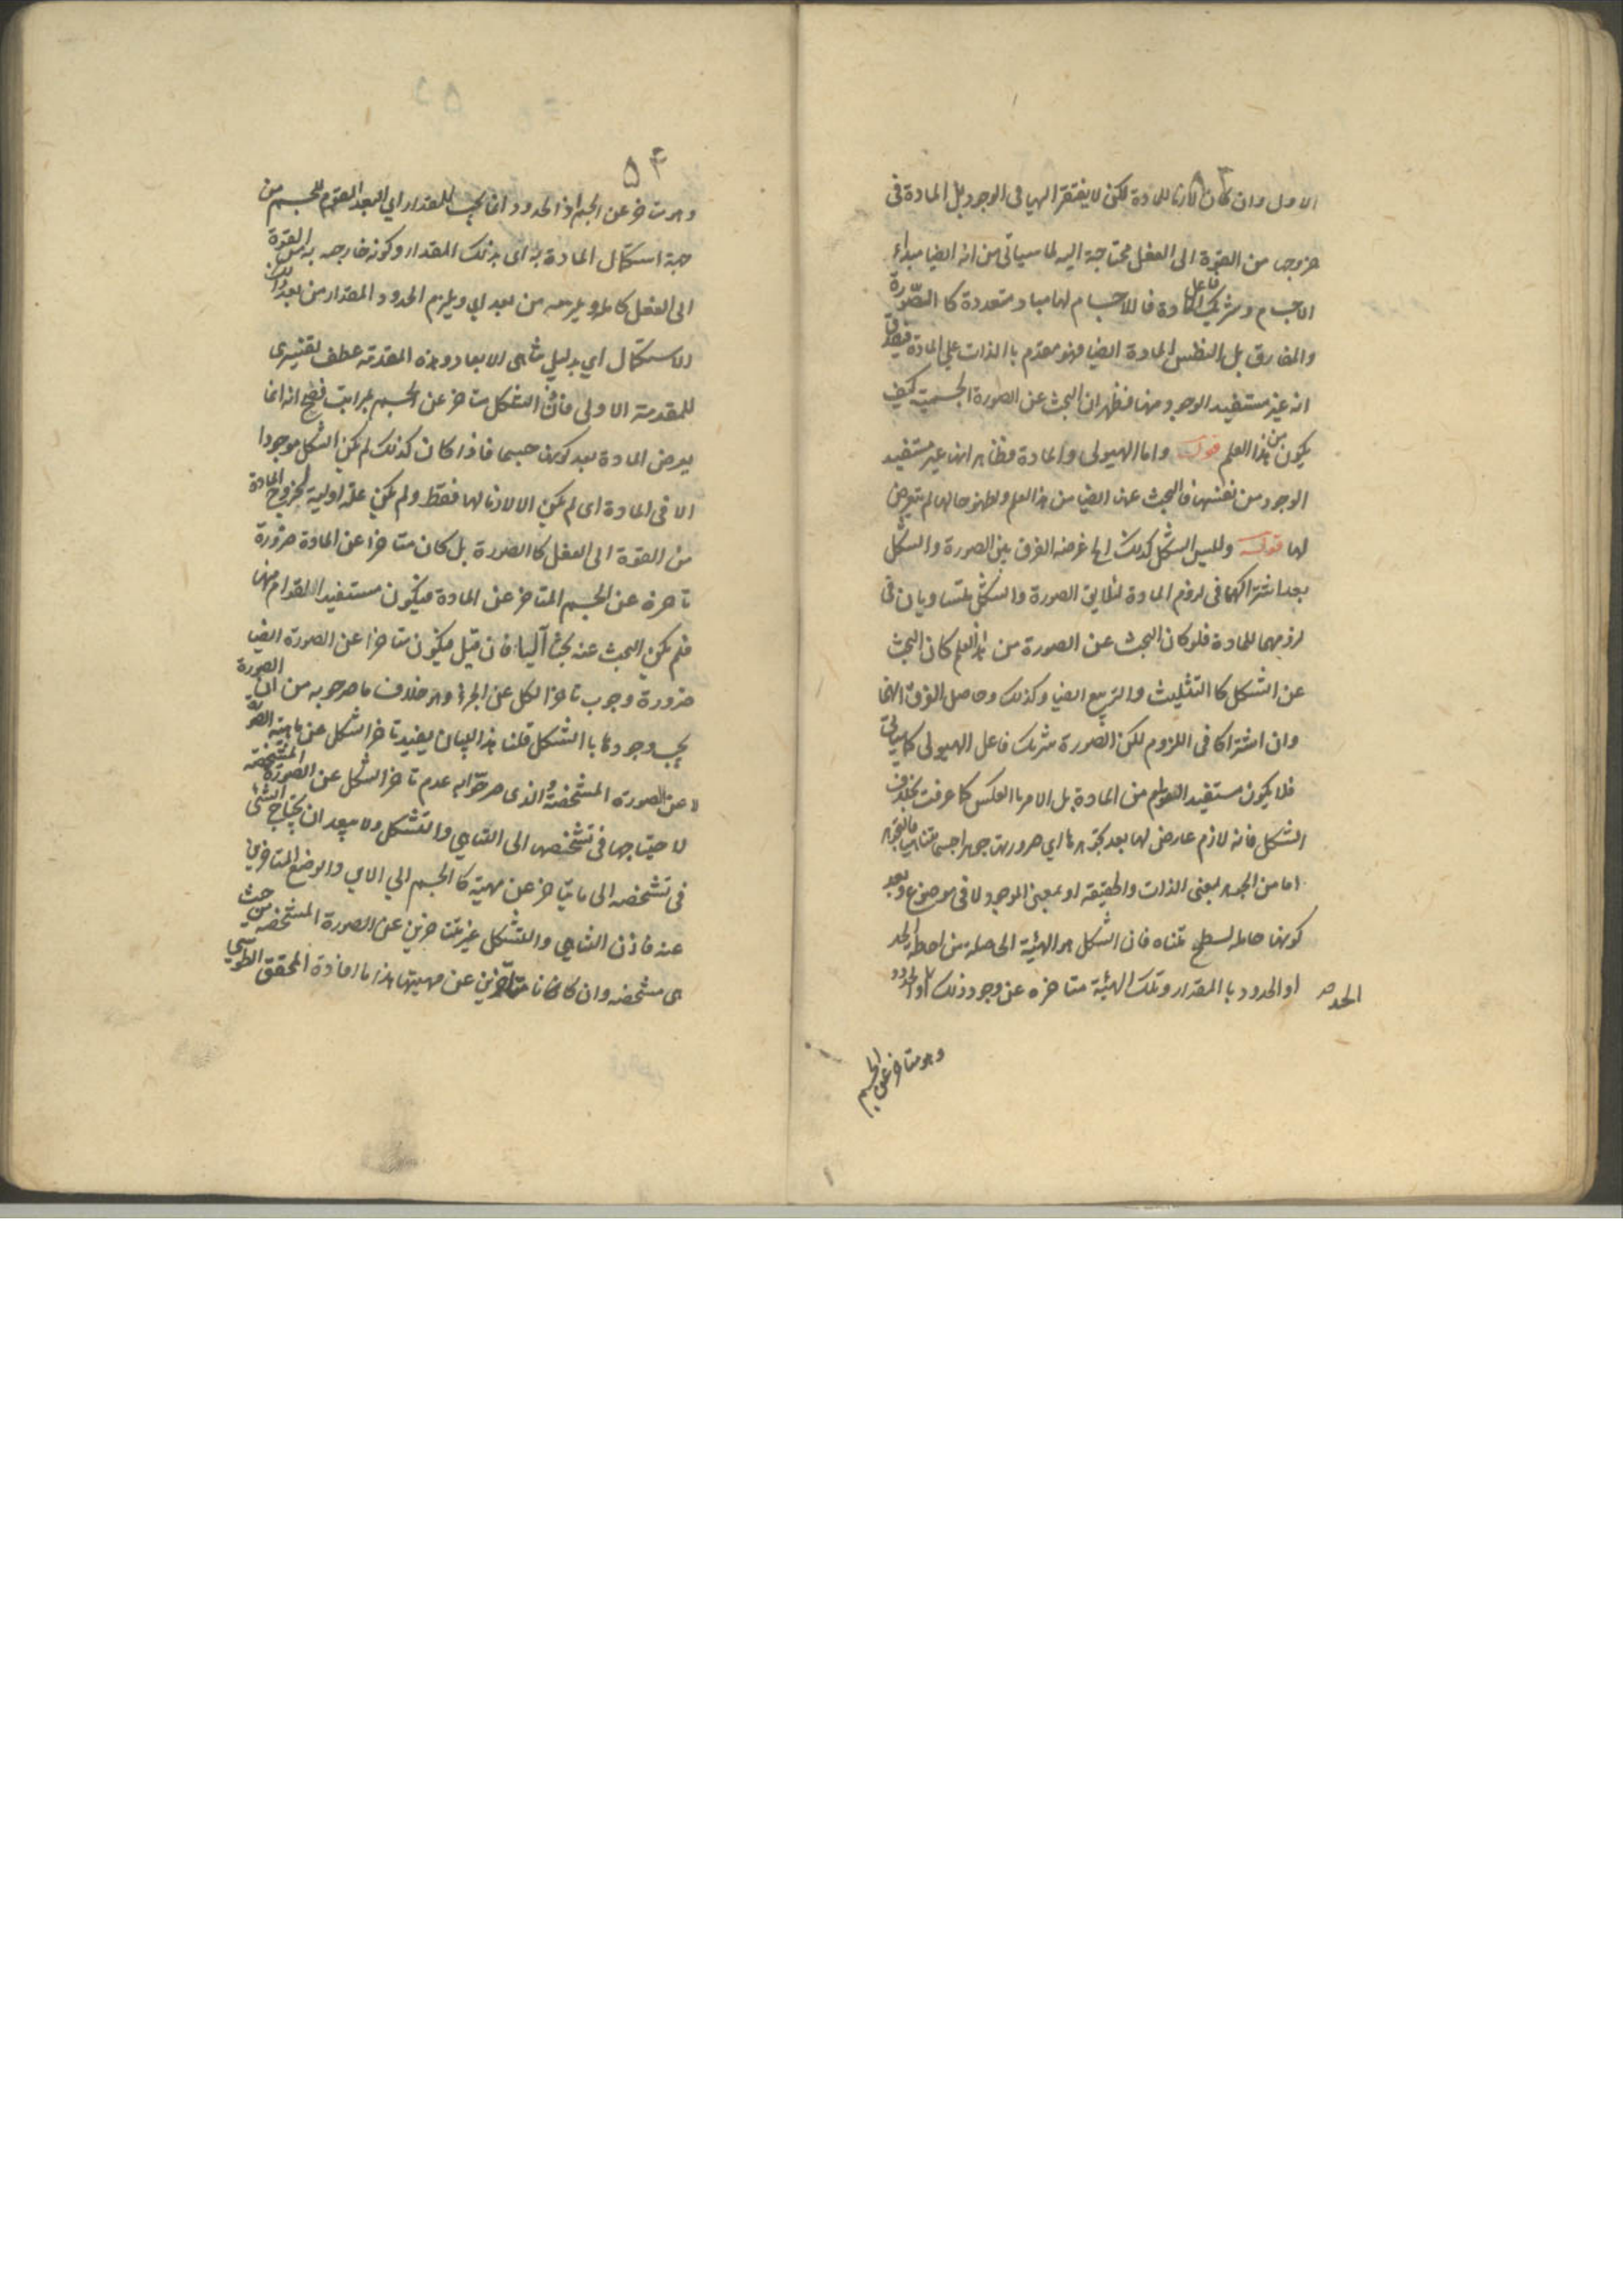 ۵۳
الاول وان كان لازما للمادة لكن لا يفتقر اليها فى الوجود بل المادة فى
خروجه من القوة الى الفعل محتاجة اليه لما سياتى من انه ايضا مبداء
الاجسام وشريك فاعل المادة فان للاجسام لها مباد متعددة كا الصورة
والمفارق بل النفس المادة ايضا فهو مقدم با الذات على المادة
انه غير مستفيد الوجود منها فظهر ان البحث عن الصورة الجسمية كيف
يكون من هذا العلم قوله واما الهيولى والمادة فظاهر انها غير مستفيد
الوجود من نفسها فالبحث عنها ايضا من هذا العلم ولظهور حالها لم يتعرض
لها قوله وليس الشكل كذلك اه غرضه الفرق بين الصورة والشكل
بعد اشتراكهما فى لزوم المادة الصورة والشكل متساويان فى
لزومهما للمادة فلو كان البحث عن الصورة من هذا العلم كان البحث
عن الشكل كا التثليث والتربيع ايضا وكذلك وحاصل الفرق انهما
وان اشتركا فى اللزوم لكن الصورة شريك فاعل الهيولى كما سياتى
فلا يكون مستفيد القوام من المادة بل الامر با العكس كما عرفت بخلاف
الشكل فانه لازم عارض لها بعد تجوهرها اي صيرورتها جوهرا جسما متناهيا فالتجوهر
اما من الجوهر بمعنى الذات والحقيقه او بمعنى الموجود لا فى موضوع وبعد
كونها حامله لسطح متناه فان الشكل هو الهيئة الحاصله من احاطة الحد
او الحدود با المقدار وتلك الهيئة متاخره عن وجود ذلك الحد او الحدود
وهو متاخر عن الجسم
۵۴
وهو متاخر عن الجسم اذ الحدود انما يجب للمقدار اي البعد المقوم للجسم من
جهة استكمال المادة به اى بذلك المقدار وكونه خارجه به من القوة
الى الفعل كاملا ويلزمه من بعد اي ويلزم الحدود المقدار من بعد ذلك
الاستكمال اي بدليل تناهى الابعاد وهذه المقدمه عطف تفسيرى
للمقدمة الاولى فاذن الشكل متاخر عن الجسم بمراتب فصح انه انما
يعرض المادة بعد كونها جسما فاذا كان كذلك لم يكن الشكل موجودا
الا فى المادة اى لم يكن الا لازما لها فقط ولم يكن علة اولية لخروج المادة
من القوة الى الفعل كا الصورة بل كان متاخرا عن المادة ضرورة
تاخره عن الجسم المتاخر عن المادة فيكون مستفيد القوام منها
فلم يكن البحث عنه بحثا آلهيا فان قيل فيكون متاخرا عن الصورة ايضا
ضرورة وجوب تاخر الكل عن الجزء وهو خلاف ما صرحو به من ان الصورة
يجب وجودها با الشكل قلنا هذا البيان يفيد تاخر الشكل عن ماهية الصورة
لا عن الصورة المشخصة والذى صرحوا به عدم تاخر الشكل عن الصورة المشخصة
لاحتياجها فى تشخصها الى التناهي والتشكل ولا يبعد ان يحتاج الشئ
فى تشخصه الى ما يتاخر عن مهية كا الجسم الي الاين والوضع المتاخرين
عنه فاذن التناهي والتشكل غير متاخرين عن الصورة المشخصه من حيث
هى مشخصه وان كانا متاخرين عن مهيتها هذا ما افادة المحقق الطوسي